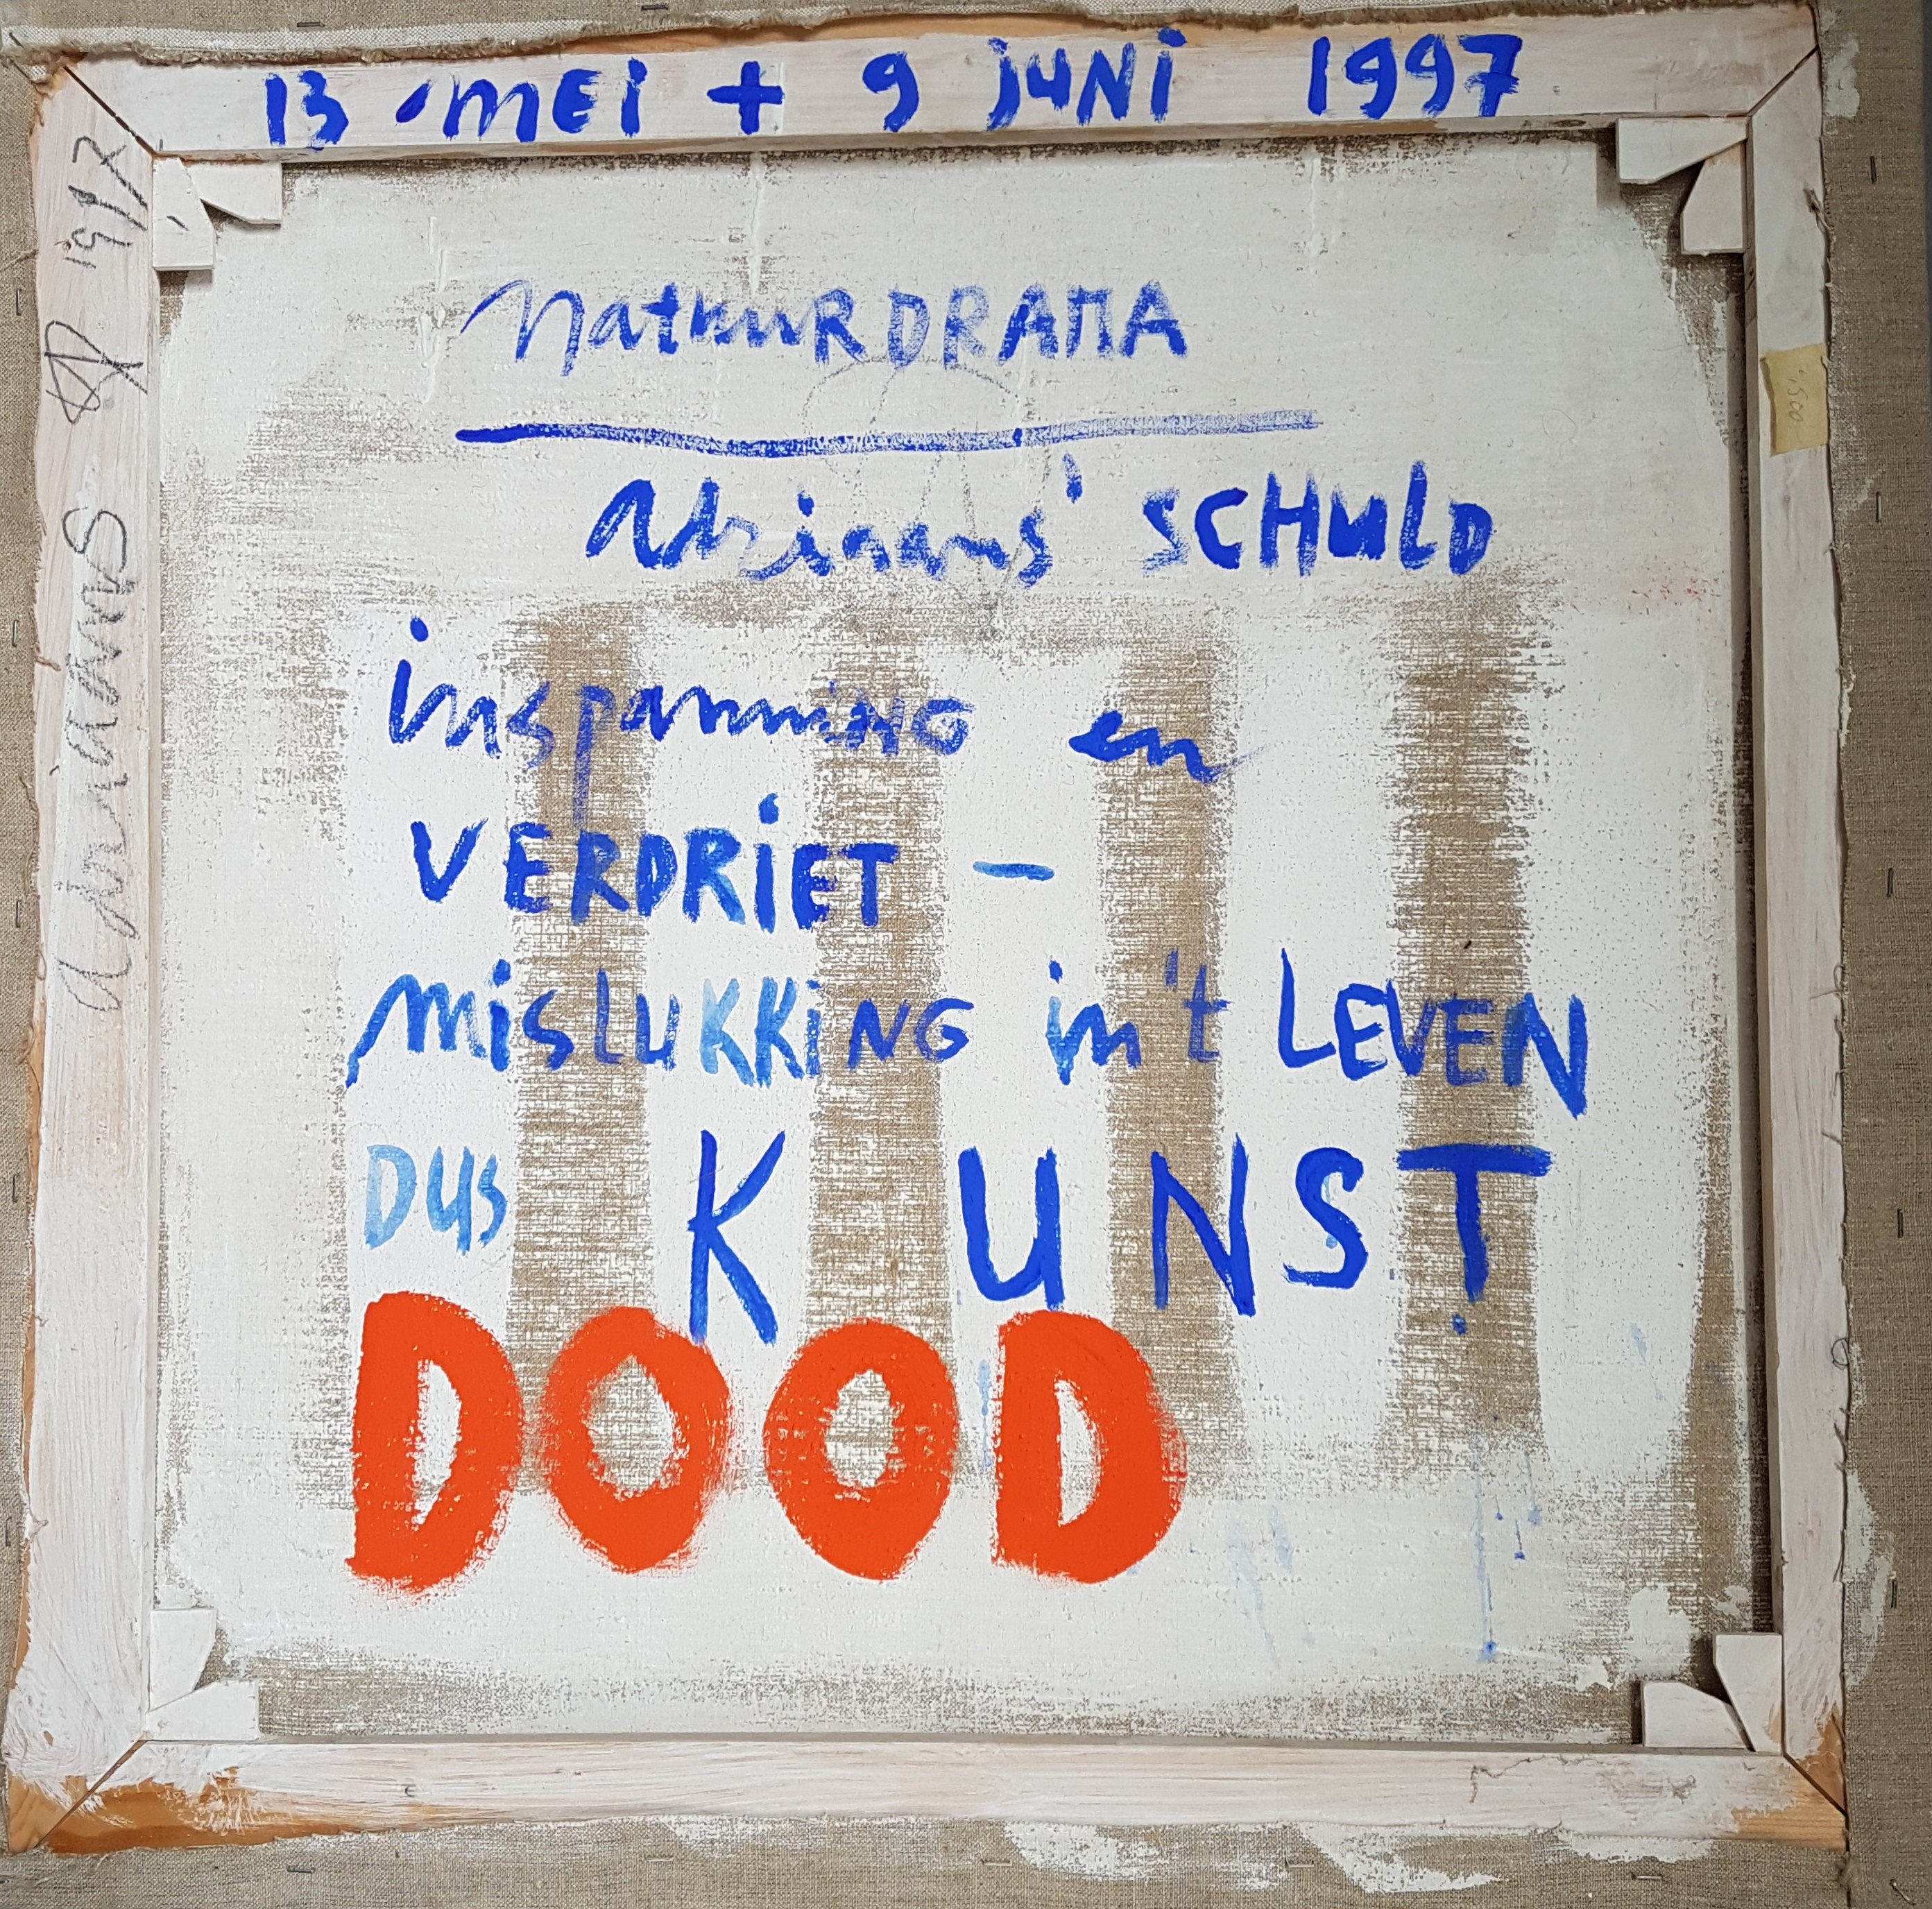 13 MEI + 9 JUNI 1997
NatuurDRAMA
Adriaans' SCHULD
inspanning en
VERDRIET –
mislukking in 't LEVEN
DUS KUNST
DOOD
adriaans 1997